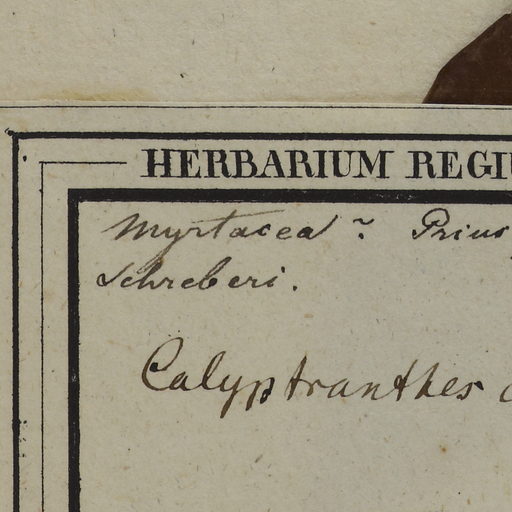 HERBARIUM REGIU
Myrtacea ~ Prius
Schreberi.
Calyptranthes